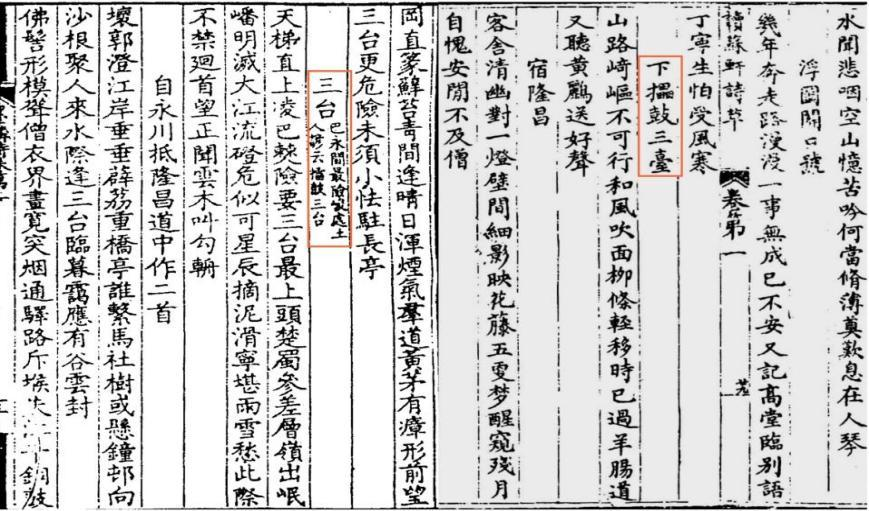 水聞悲咽空山憶苦吟何當脩薄奠歎息在人琴
浮圖關口號
幾年奔走路漫漫一事無成已不安又記高堂臨別語
讀蘇軒詩草 卷第一
丁寧生怕受風寒
下搵鼓三臺
山路崎嶇不可行和風吹面柳條輕移時已過羊腸道
又聽黃鸝送好聲
宿隆昌
客舍清幽對一燈壁間細影映花藤五更梦醒窺殘月
自愧安閒不及僧
岡直篆蘚苔蒼間逢晴日渾煙氣羣道黃茅有瘴形前望
三台更危險未須小怯駐長亭
三台 巴永間最險處土人諺云擂鼓三台
天梯直上凌巴棘險要三台最上頭楚蜀參差層嶺出岷
嶓明滅大江流磴危似可星辰摘泥滑寧堪雨雪愁此際
不禁廻首望正聞雲木叫勾輈
自永川抵隆昌道中作二首
壞郭澄江岸垂垂薜荔重橋亭誰繫馬社樹或懸鐘邨向
沙根聚人來水際逢三台臨暮靄應有谷雲封
佛髻形模聳僧衣界畫寬突烟通驛路斥堠 銅鼓